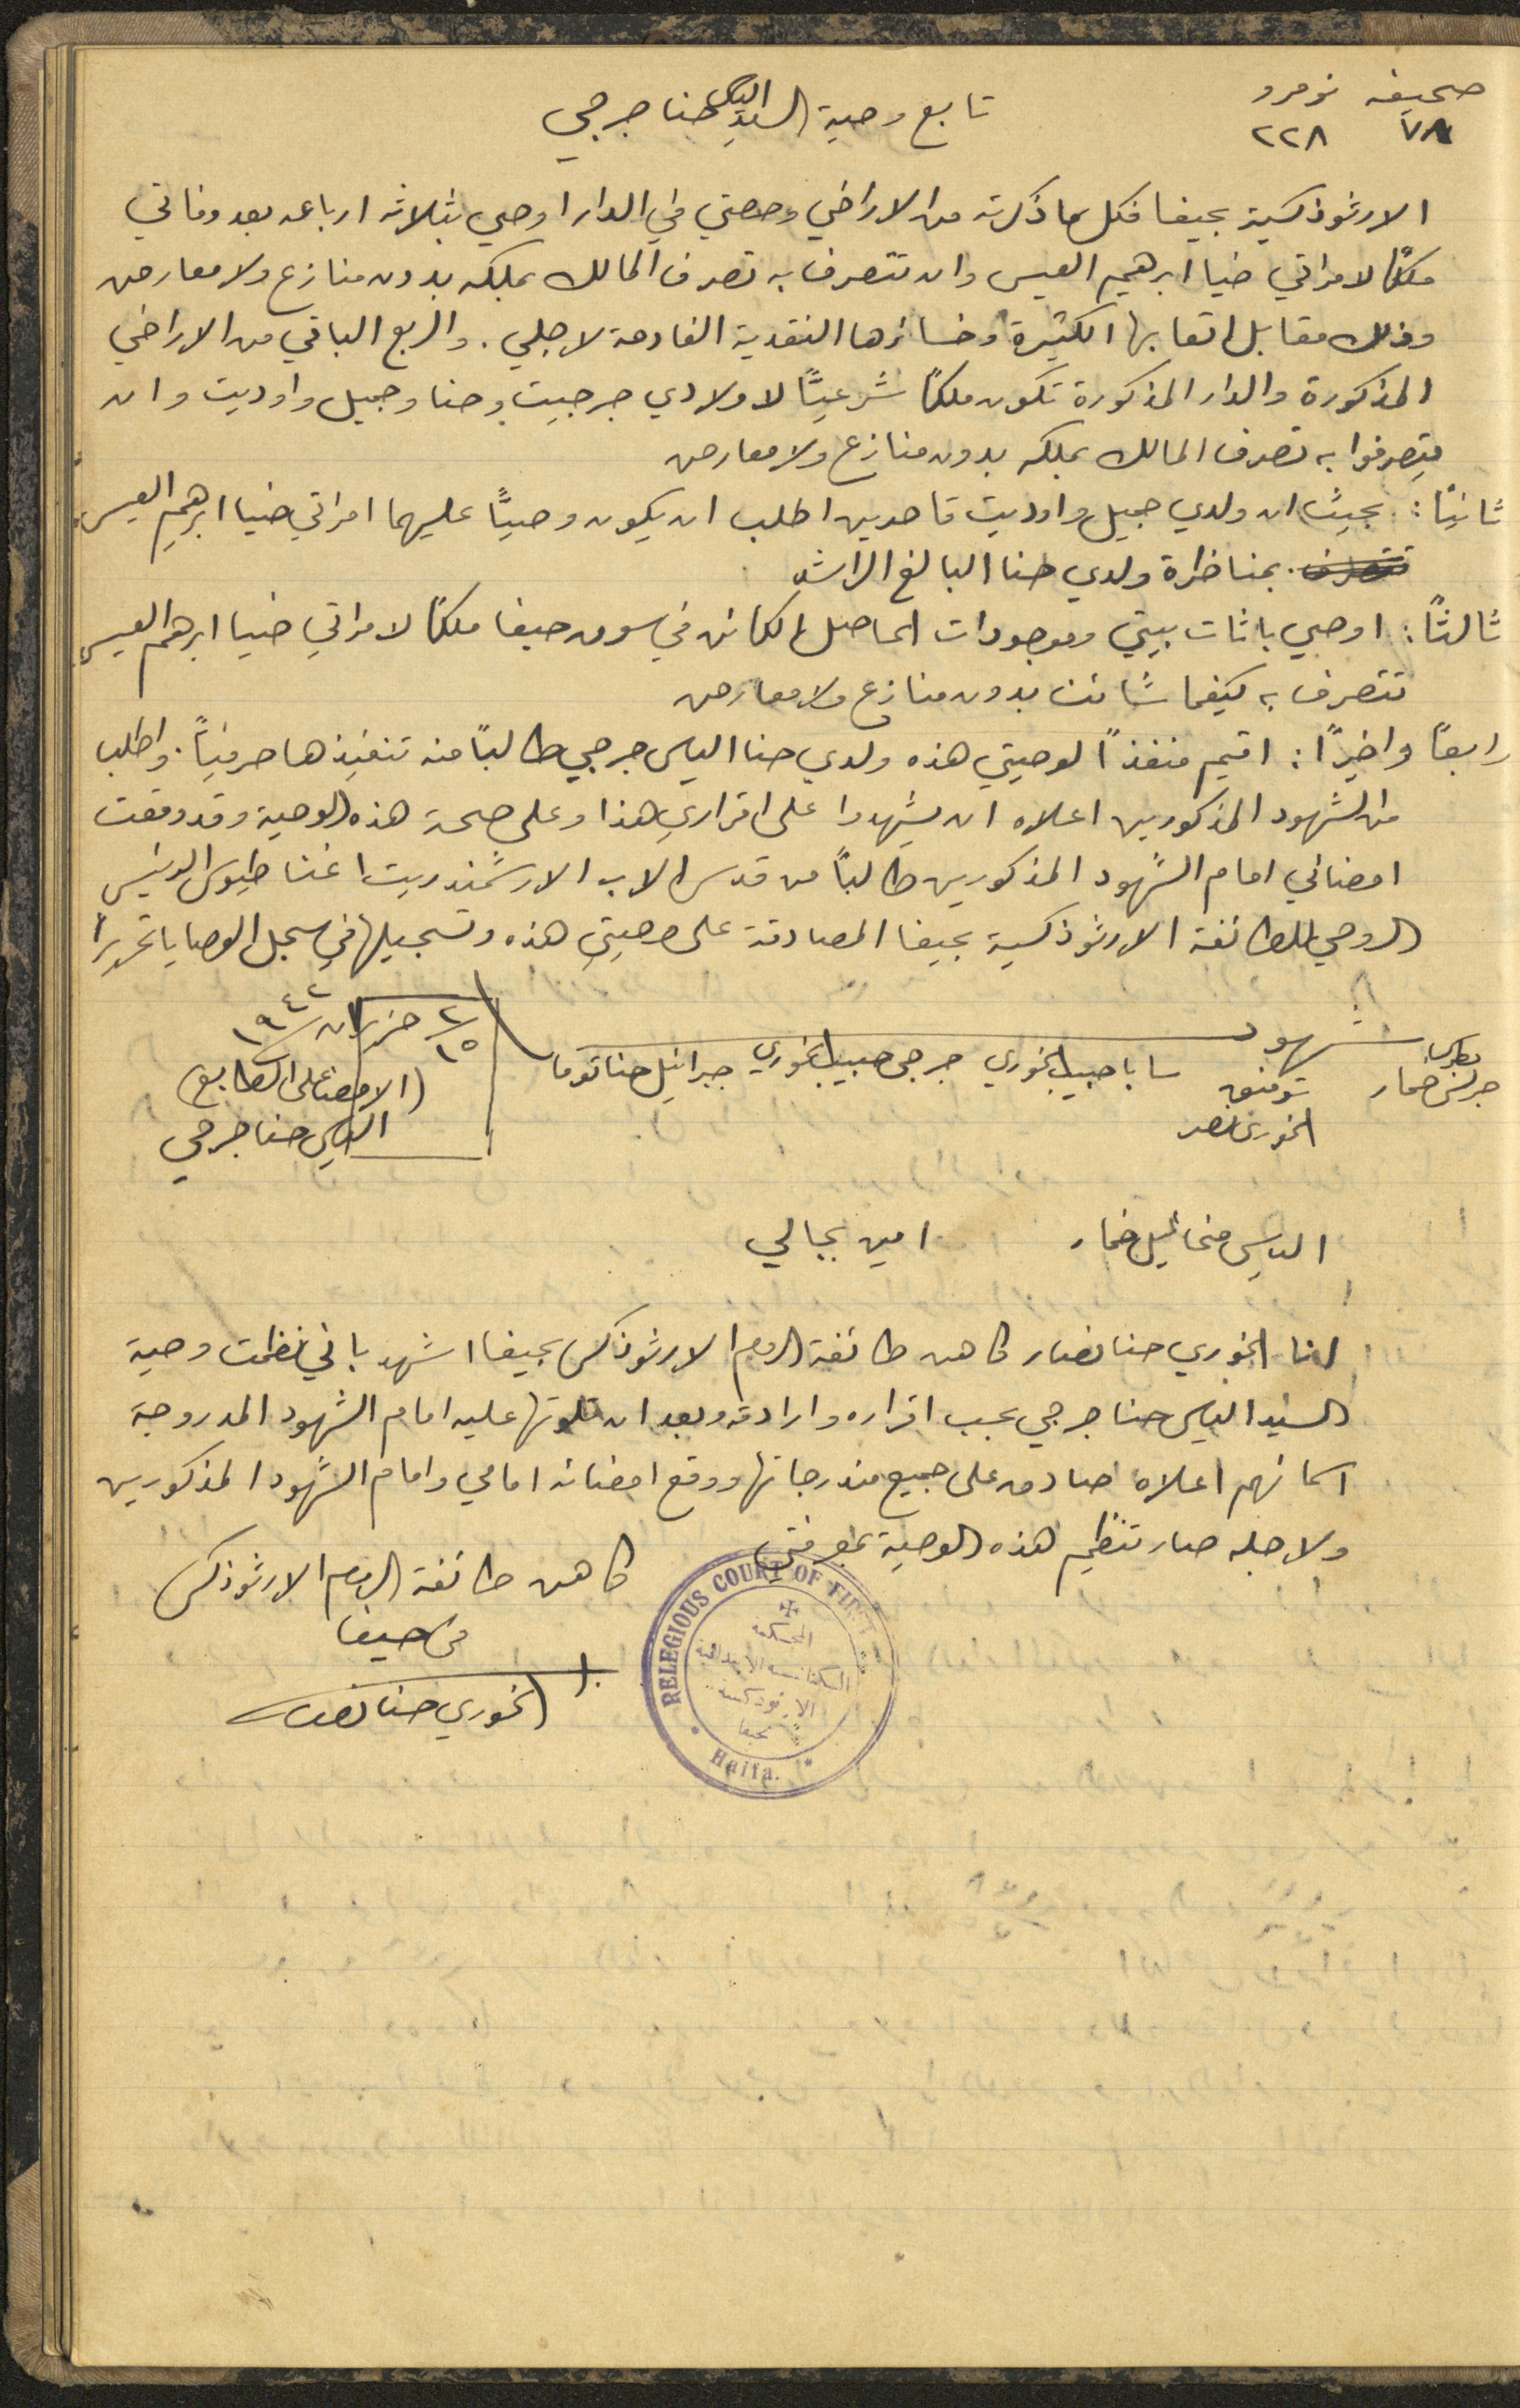 صحيفه نومرو
٧٨ ٢٢٨
تابع وصية السيد الياس حنا جرجي
الارثوذكسية بحيفا فكل ما ذكرته من الاراضي وحصتي في الدار اوصي بثلاثة ارباعه بعد وفاتي
ملكًا لامراتي ضيا ابرهيم العيسى وان تتصرف به تصرف المالك بملكه بدون منازع ولا معارض
وذلك مقابل اتعابها الكثيرة وخسائرها النقدية الفادحة لاجلي . والربع الباقي من الاراضي
المذكورة والدار المذكورة تكون ملكًا شرعيًّا لاولادي جرجيت وحنا وجميل واوديت وان
يتصرفوا به تصرف المالك بملكه بدون منازع ولا معارض
ثانيًا : بحيث ان ولدي جميل واوديت قاصرين اطلب ان يكون وصيًّا عليهما امراتي ضيا ابرهيم العيسى
تتصرف . بمناظرة ولدي حنا البالغ الراشد
ثالثًا : اوصي باثاث بيتي وموجودات الحاصل الكائن في سوق حيفا ملكًا لامراتي ضيا ابرهيم العيسى
تتصرف به كيفما شائت بدون منازع ولا معارض
رابعًا واخيرًا : اقيم منفذًا لوصيتي هذه ولدي حنا الياس جرجي طالبًا منه تنفيذها حرفيًا . واطلب
من الشهود المذكورين اعلاه ان يشهدوا على اقراري هذا وعلى صحة هذه الوصية وقد وقعت
امضائي امام الشهود المذكورين طالبًا من قدس الاب الارشمندريت اغناطيوس الرئيس
الروحي للطائفة الارثوذكسية بحيفا المصادقة على وصيتي هذه وتسجيلها في سجل الوصايا تحريرًا
٢/١٥ حزيران ١٩٤٢
شهود
جرلس خمار توفيق الخوري نصر سابا حبيب الخوري جرجي حبيب الخوري جبرائيل حنا توما
(الامضا على الطابع)
الياس حنا جرجي
الياس مخائيل خمار امين بجالي
انا الخوري حنا نصار كاهن طائفة الروم الارثوذكس بحيفا اشهد باني نظمت وصية
السيد الياس حنا جرجي بحسب اقراره وارادته وبعد ان تلوتها عليه امام الشهود المدروجة
اسمائهم اعلاه صادق على جميع مندرجاتها ووقع امضائه امامي وامام الشهود المذكورين
ولاجله صار تنظيم هذه الوصية بمعرفتي
كاهن طائفة الروم الارثوذكس
في حيفا
الخوري حنا نصار
RELEGIOUS COURT OF FIRST
المحكمة
الكنائسية الابتدائية
الارثوذكسية
بحيفا
Haifa.